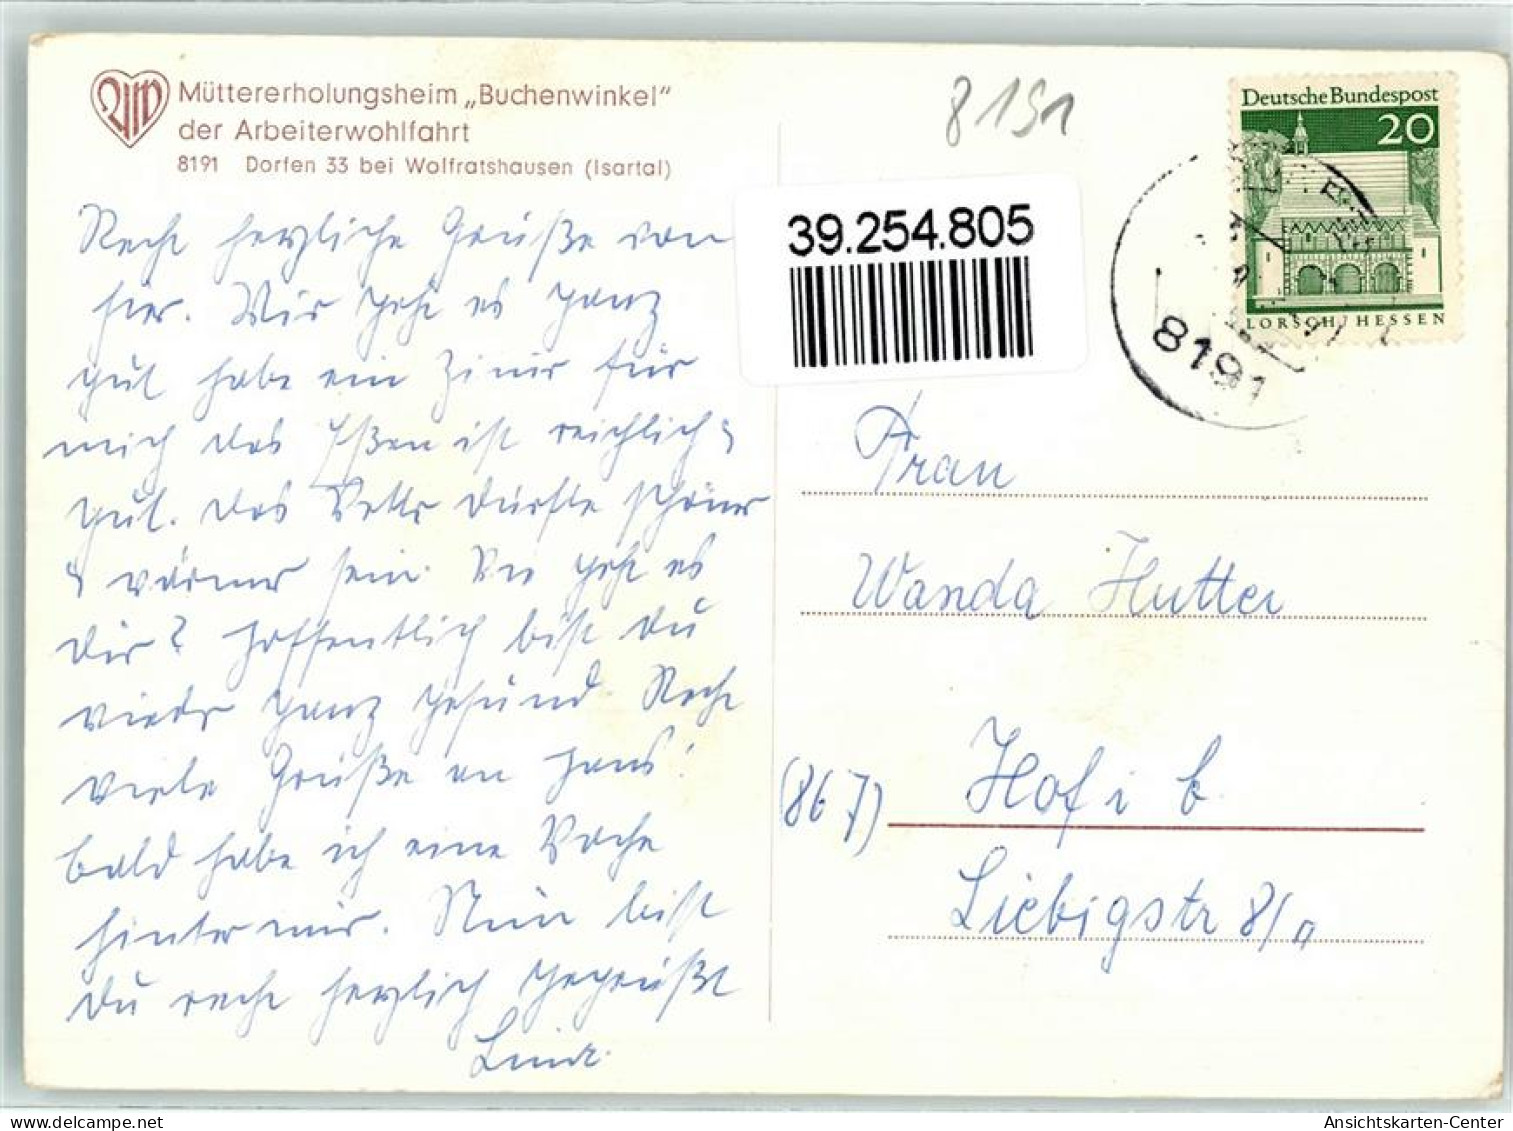 Müttererholungsheim „Buchenwinkel"
der Arbeiterwohlfahrt
8191 Dorfen 33 bei Wolfratshausen (Isartal)
8191
Deutsche Bundespost
20
LORSCH / HESSEN
8191
39.254.805
Recht herzliche Grüße von
hier. Mir geht es ganz
gut habe ein Zimmer für
mich das Eßen ist reichlich &
gut. Das Wetter dürfte schöner
& wärmer sein. Wie geht es
Dir? Hoffentlich bist du
wieder ganz gesund. Recht
viele Grüße an Hans!
bald habe ich eine Woche
hinter mir. Nun bist
Du recht herzlich gegrüßt
Frau
Wanda Hutter
(867) Hof i b
Liebigstr 8/a
Ansichtskarten-Center